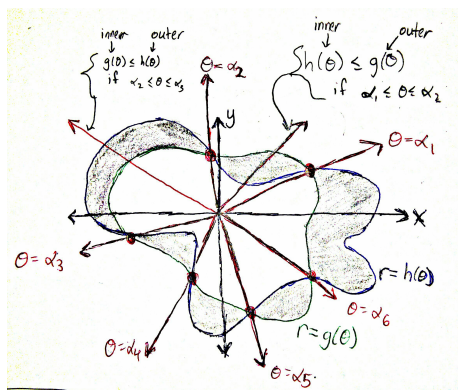 inner outer
g(θ) ≤ h(θ)
if α₂ ≤ θ ≤ α₃
inner outer
h(θ) ≤ g(θ)
if α₁ ≤ θ ≤ α₂
θ = α₂
y
θ = α₁
x
θ = α₃
r = h(θ)
θ = α₆
r = g(θ)
θ = α₄
θ = α₅.